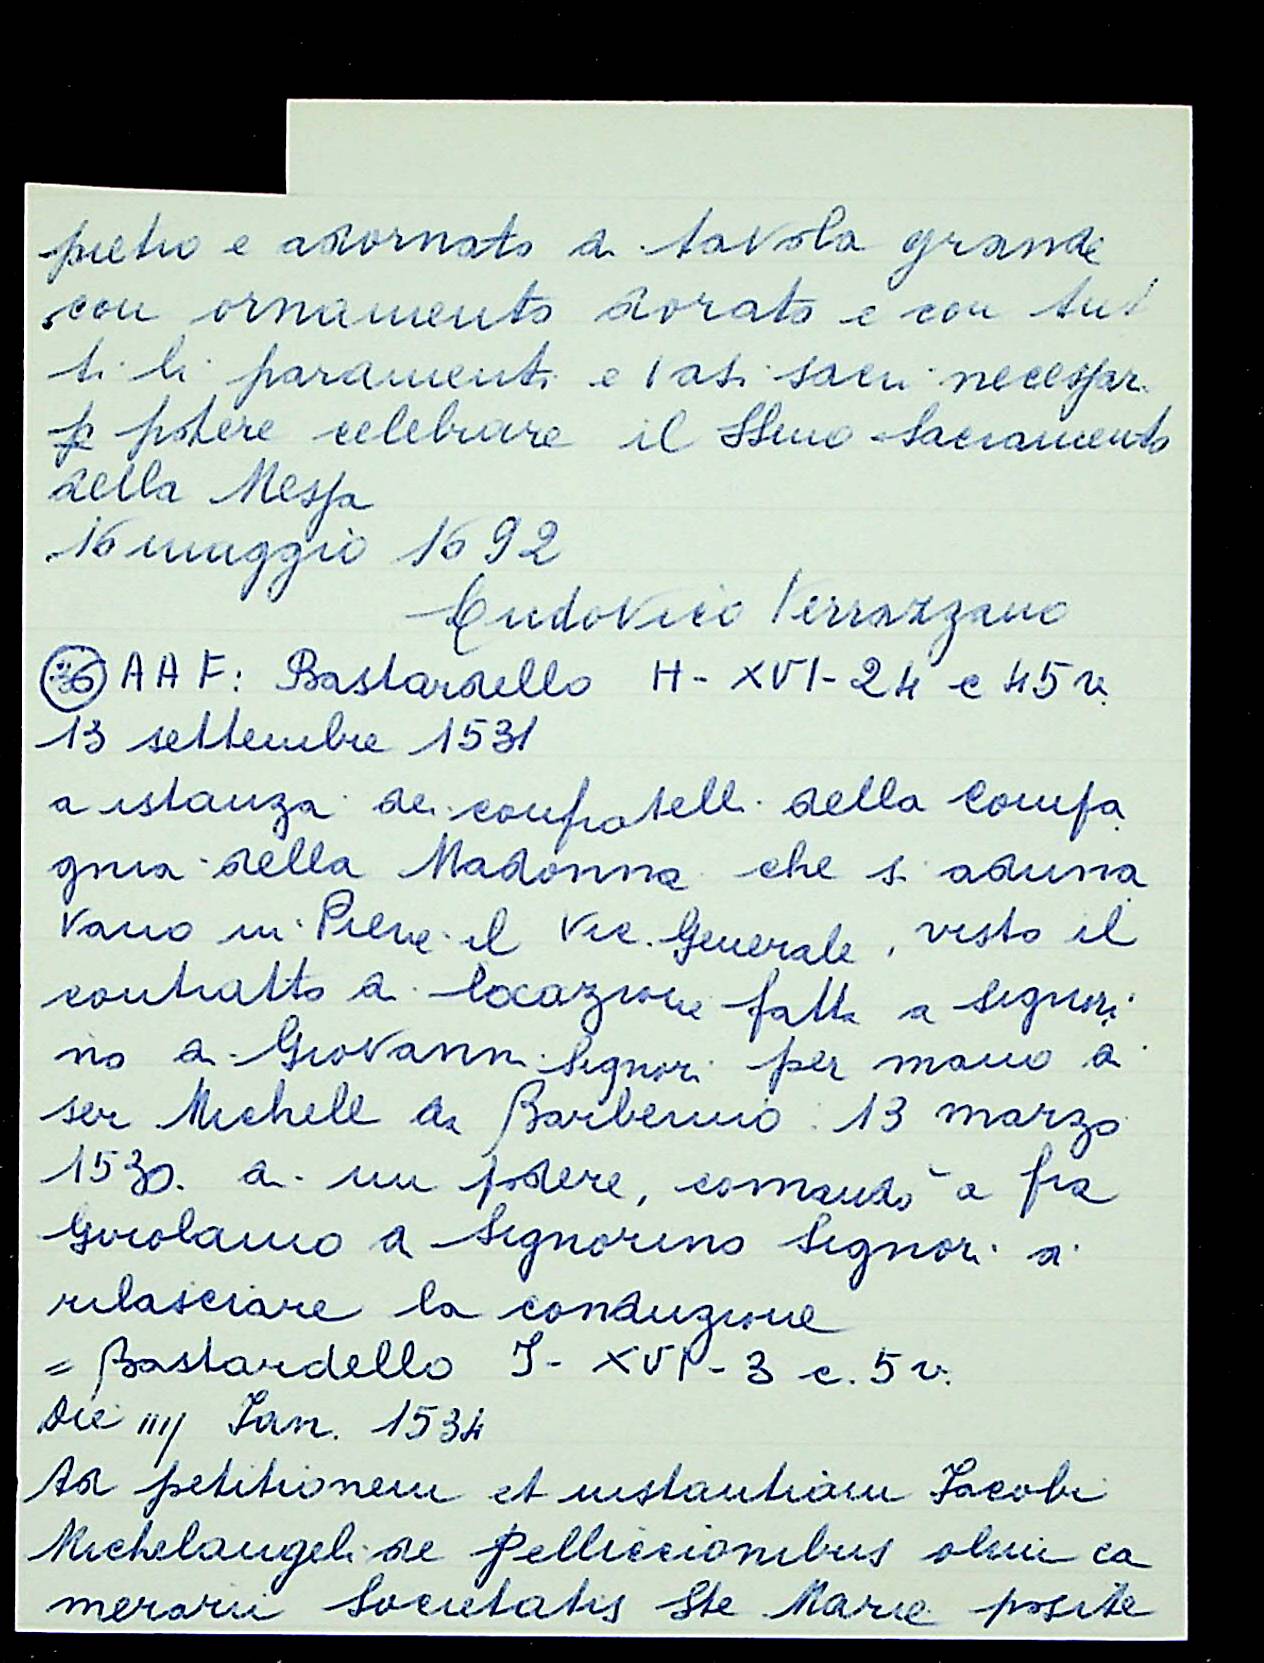 pietro e adornato di tavola grande
con ornamento dorato e con tut
ti li paramenti e vasi sacri necessari
p potere celebrare il SSmo Sacramento
della Messa
16 maggio 1692
Ludovico Verrazzano
36 AAF: Bastardello H-XVI-24 c 45 v.
13 settembre 1531
a istanza dei confratelli della Compa
gnia della Madonna che si aduna
vano in Pieve il Vic. Generale, visto il
contratto di locazione fatta a Signori
no di Giovanni Signori per mano di
ser Michele da Barberino 13 marzo
1530. di un podere, comandò a fra
Girolamo di Signorino Signori di
rilasciare la conduzione
= Bastardello I-XVI-3 c. 5 v.
Die iiij Ian. 1534
Ad petitionem et instantiam Iacobi
Michelangeli de Pelliccionibus olim ca
merarii Societatis Ste Marie posite